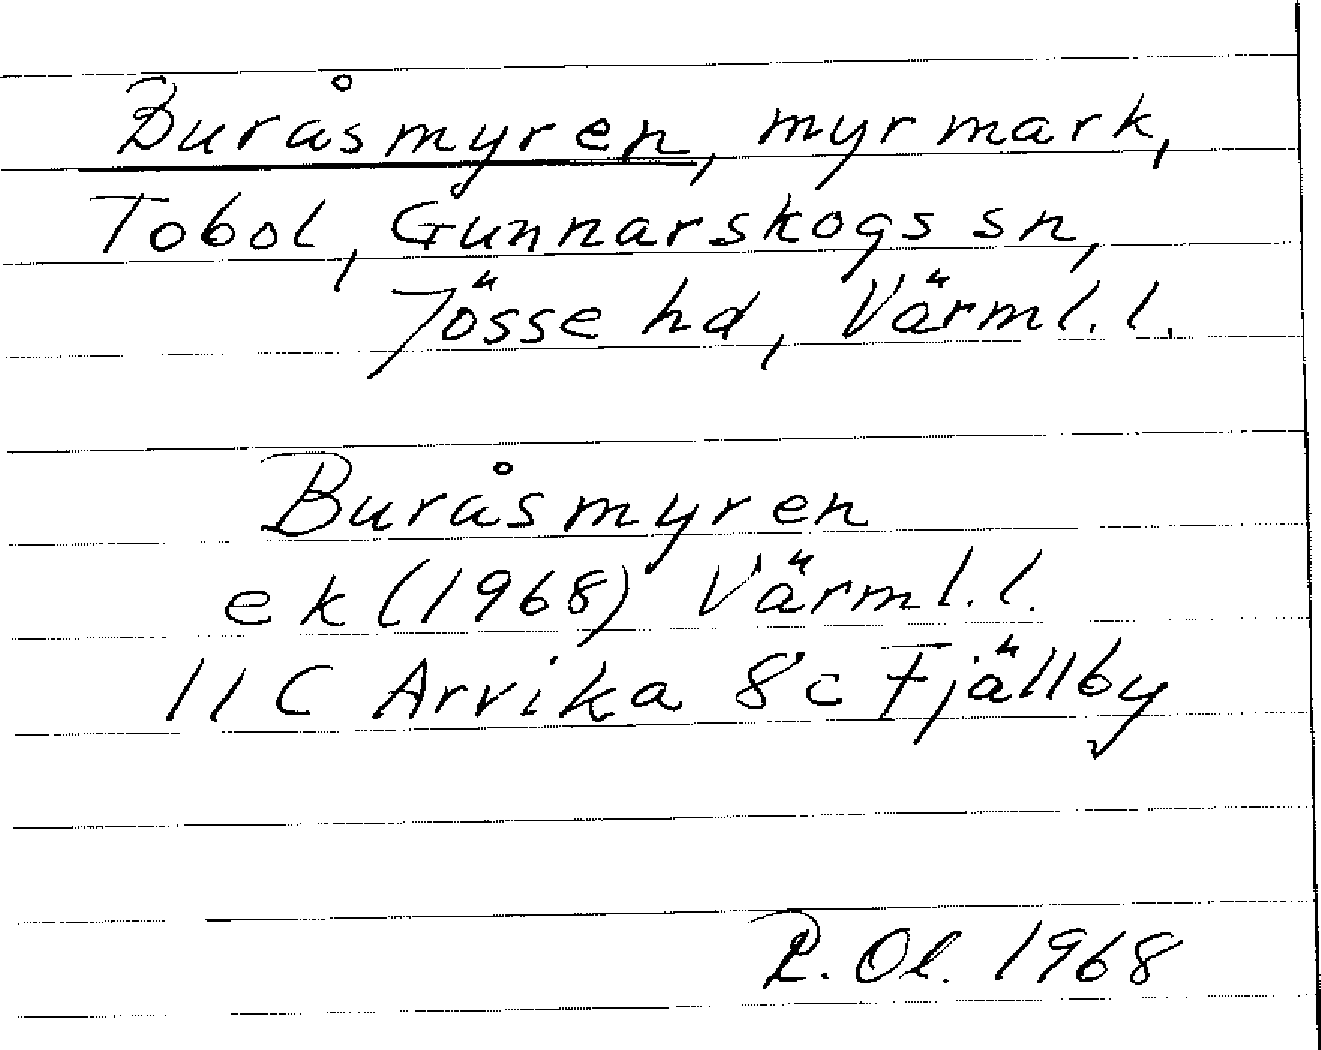 Buråsmyren, myrmark,
Tobol, Gunnarskogs sn,
Jösse hd, Värml.l.
Buråsmyren
ek (1968) Värml.l.
11 C Arvika 8 c Fjällby
R. Ol. 1968